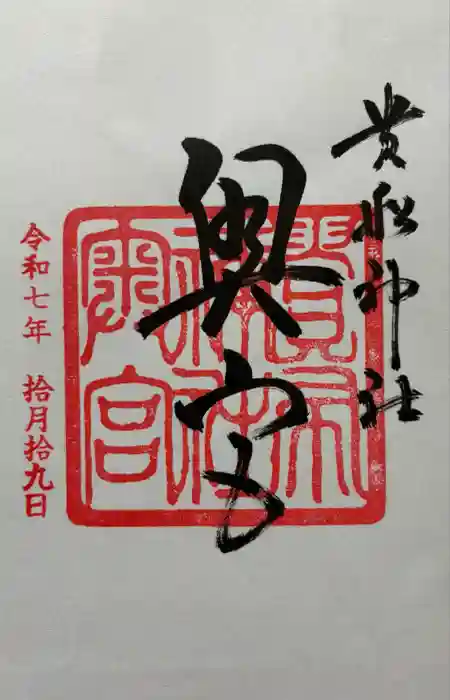 貴船神社
奥宮
貴布祢神社奥宮
令和七年 拾月拾九日